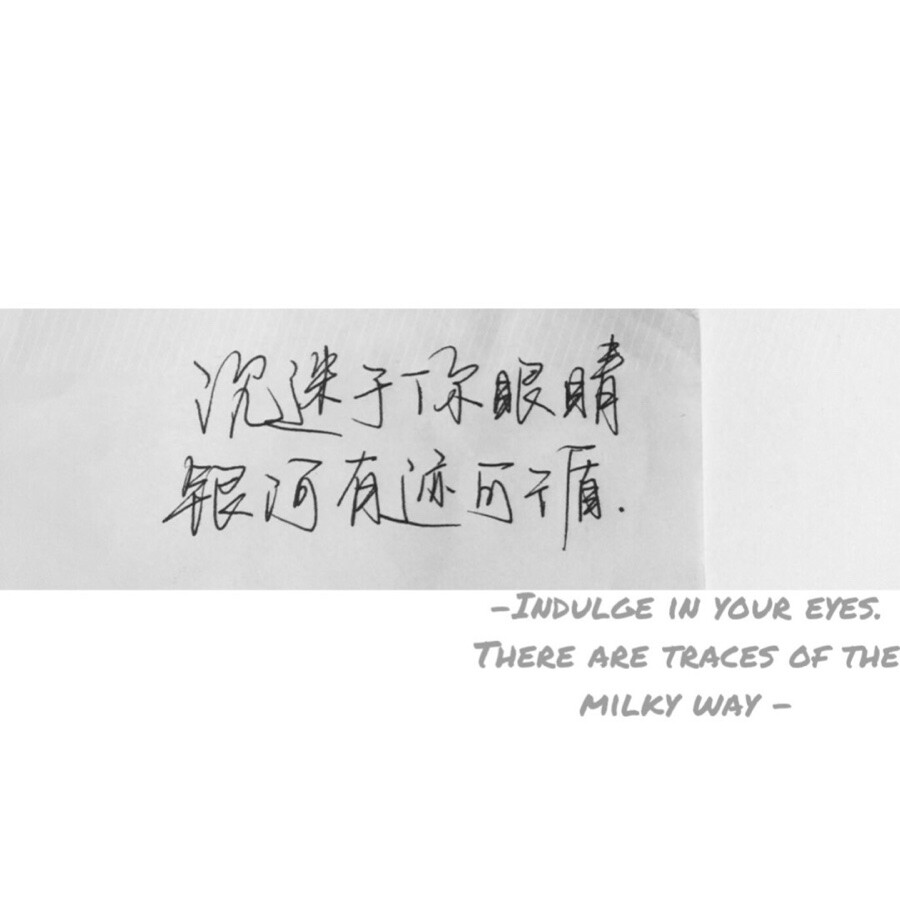 沉迷于你眼睛
银河有迹可循.
-Indulge in your eyes.
There are traces of the
milky way -